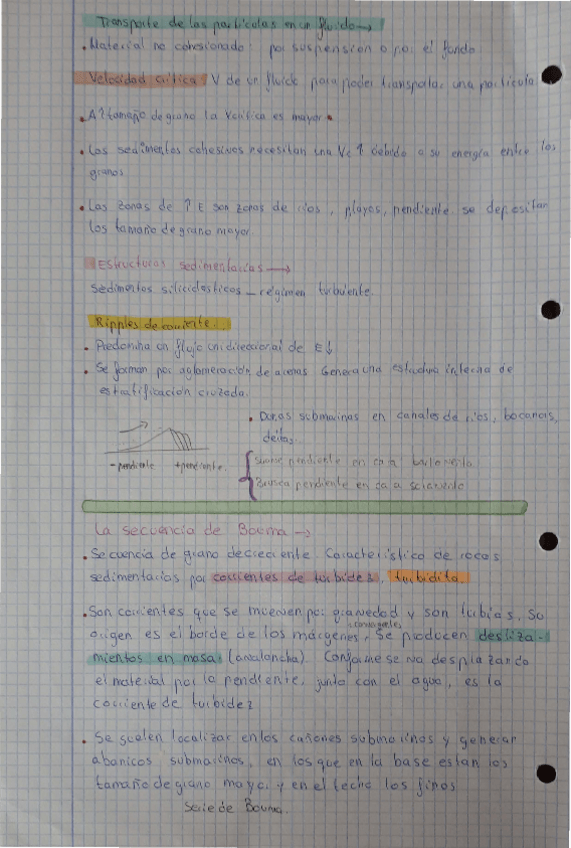 Transporte de las partículas en un fluido →
• Material no cohesionado: por suspensión o por el fondo
Velocidad crítica: V de un fluido para poder transportar una partícula
• A ↑ tamaño de grano la Vcrítica es mayor.
• Los sedimentos cohesivos necesitan una Vc ↑ debido a su energía entre los
granos
• Las zonas de ↑ E son zonas de ríos, playas, pendiente se depositan
los tamaño de grano mayor
Estructuras sedimentarias →
Sedimentos siliciclasticos _ régimen turbulento.
Ripples de corriente.
• Predomina un flujo unidireccional de E↓
• Se forman por aglomeración de arenas Genera una estructura interna de
estratificación cruzada.
• Dunas submarinas en canales de ríos, bocanas,
deltas.
- pendiente + pendiente.
Suave pendiente en cara barlovento
Brusca pendiente en cara sotavento
La secuencia de Bouma →
• Secuencia de grano decreciente. Característico de rocas
sedimentarias por corrientes de turbidez, turbidita.
• Son corrientes que se mueven por gravedad y son turbias, su
origen es el borde de los márgenes, se producen desliza-
mientos en masa (avalancha). Conforme se va desplazando
el material por la pendiente, junto con el agua, es la
corriente de turbidez
• Se suelen localizar en los cañones submarinos y generan
abanicos submarinos, en los que en la base estan los
tamaño de grano mayor y en el techo los finos
Serie de Bouma.